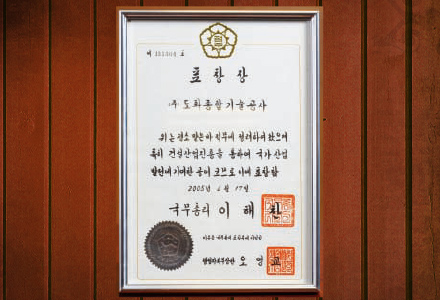 제 호
표 창 장
(주) 도화종합기술공사
위는 평소 맡은바 직무에 정려하여 왔으며
특히 건설산업진흥을 통하여 국가 산업
발전에 기여한 공이 크므로 이에 표창함
2005년 6월 17일
국무총리 이 해 찬
행정자치부장관 오 영 교